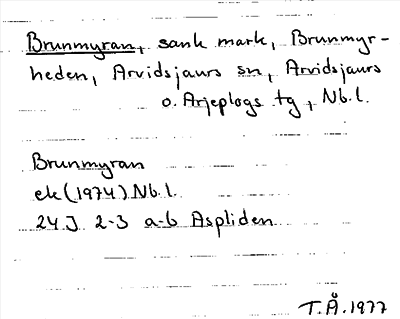 Brunmyran, sank mark, Brunmyr-
heden, Arvidsjaurs sn, Arvidsjaurs
o. Arjeplogs tg, Nb.l.
Brunmyran
ek (1974) Nb.l.
24J 2-3 a-b Aspliden
T.Å. 1977